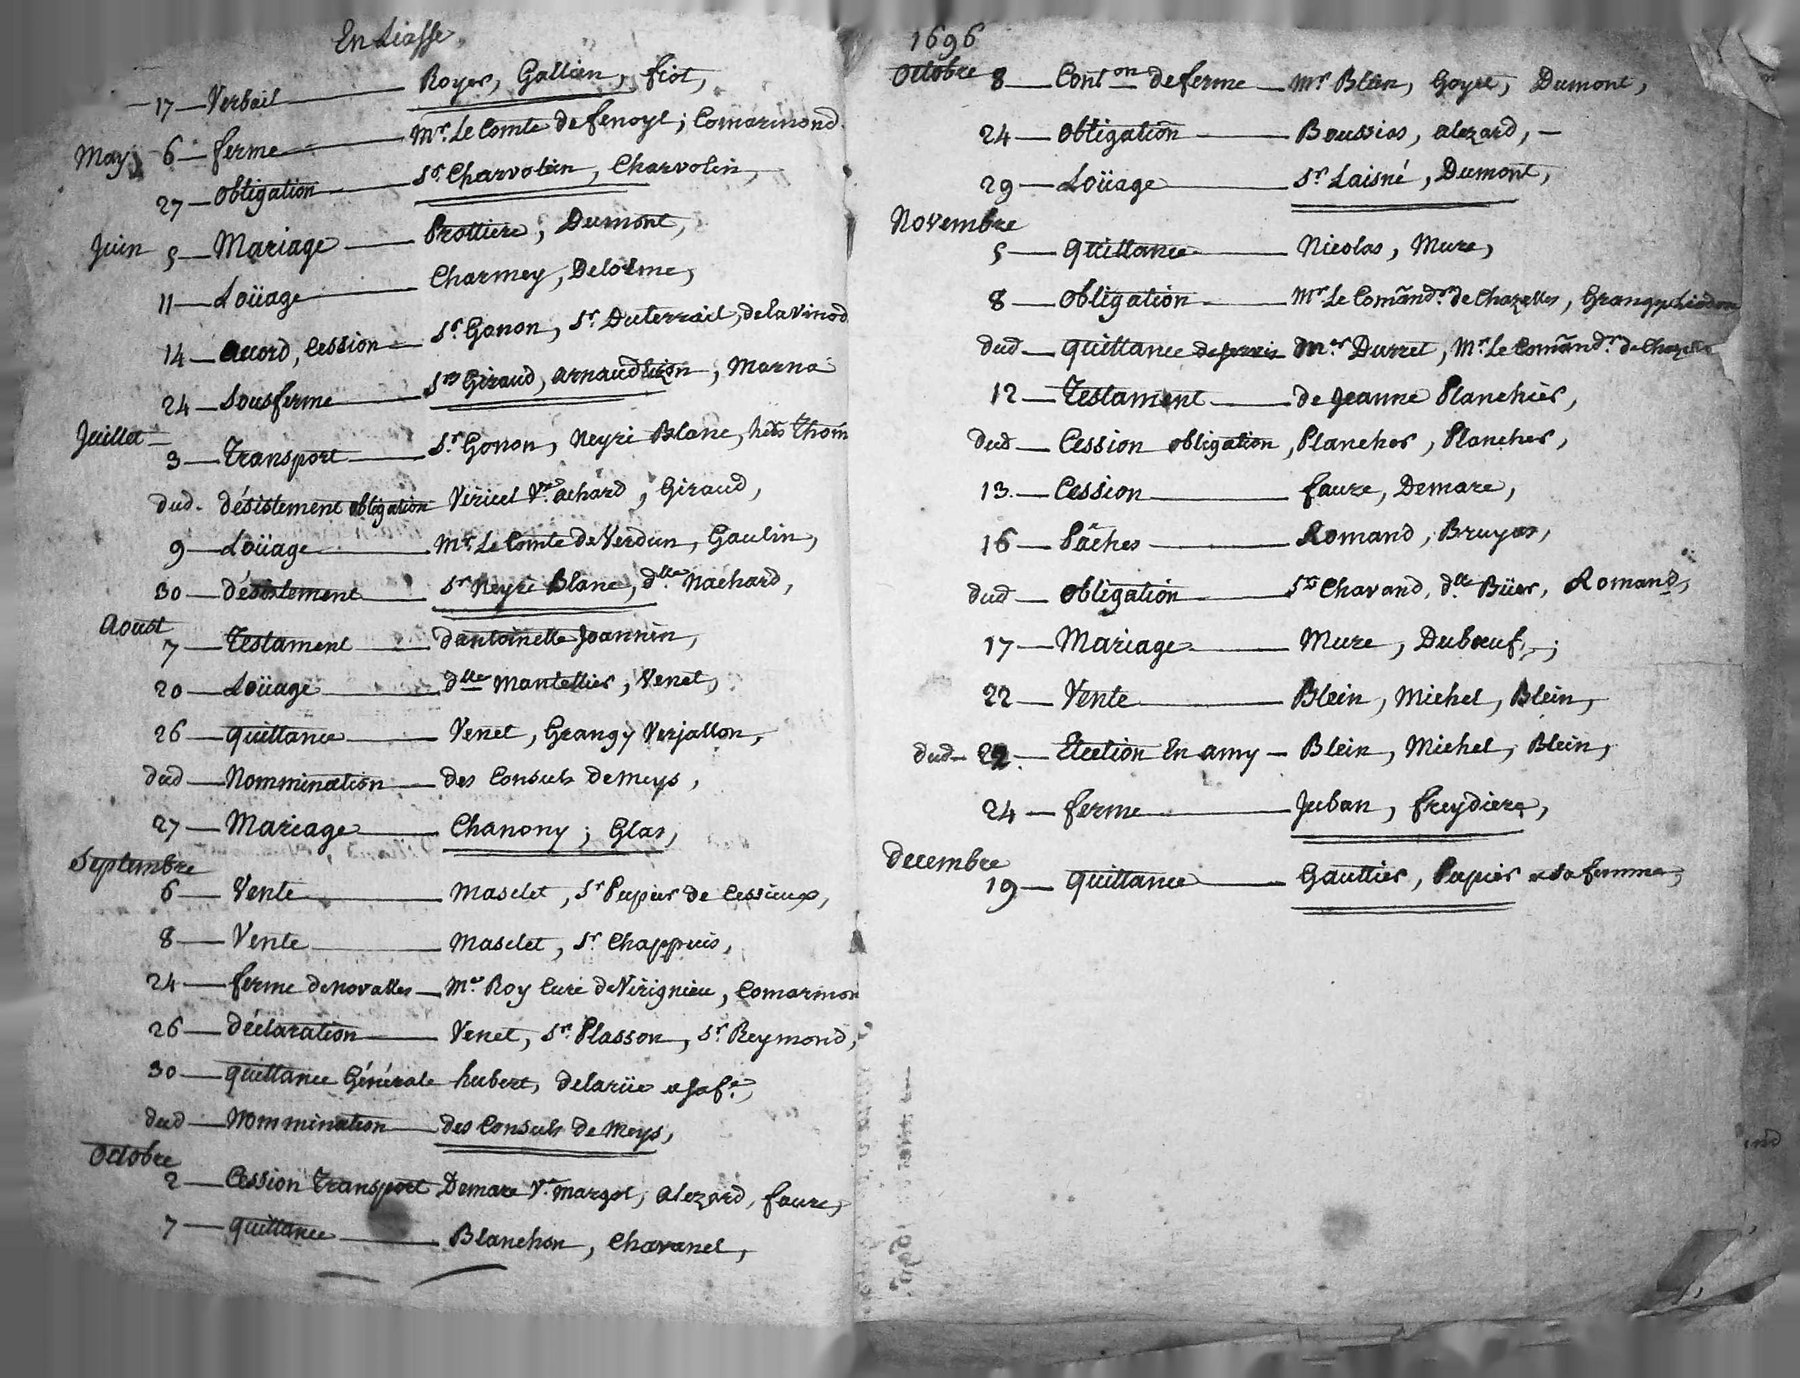 En Liasse
17 — Verbail — Royer, Gallien, fiot,
May 6 — ferme — Mr. Le Comte de fenoyl; Comarmond
27 — obligation — Sr. Charvolin, Charvolin,
Juin 5 — Mariage — Prottiere, Dumont,
11 — Loüage — Charmey, Delorme,
14 — accord, Cession — Sr. Gonon, Sr. Duterrail, de la Vinod
24 — Sousferme — Srs Giraud, arnaud, Marna
Juillet
3 — Transport — Sr. Gonon, Neyri Blanc, hers Thom
dud. désistement obligation Vericel Ve achard, Giraud,
9 — Loüage — Mr. Le Comte de Verdun, Gaulin,
30 — désistement — Sr Neyri Blanc, dlle Nachard,
Aoust
7 — Testament — dantoinette Joannin,
20 — Loüage — dlle Mantellier, Venet,
26 — quittance — Venet, Grangy Verjallon,
dud — Nommination — des Consuls de meys,
27 — Mariage — Chanony; Glas,
Septembre
6 — Vente — Masclet, Sr Pupier de Cessieux,
8 — Vente — Masclet, Sr. Chappuis,
24 — ferme de novalles — Mre Roy Curé de Virignieu, Comarmon
26 — déclaration — Venet, Sr. Plasson, Sr. Reymond,
30 — quittance Générale hubert, delarüe et sa fe,
dud — Nommination — des Consuls de Meys,
Octobre
2 — Cession Transport Demare Ve. margot, alezard, faure,
7 — quittance — Blanchon, Chavanel,
1696
Octobre 8 — Conton de ferme — Mr Blein, Goyet, Dumont,
24 — obligation — Boussior, alezard, —
29 — Loüage — Sr. Laisné, Dumont,
Novembre
5 — quittance — Nicolas, Mure,
8 — obligation — Mr Le Comãndr. de Chazelles, Grangy
dud — quittance de servis Mre Durret, Mr. Le Comãndr. de Chazelles
12 — Testament — de Jeanne Planchier,
dud — Cession obligation, Plancher, Plancher,
13. — Cession — faure, Demare,
16 — Pâches — Romand, Bruyas,
dud — obligation — Srs Chavand, dlle Büer, Romand,
17 — Mariage — Mure, Dubœuf;
22 — Vente — Blein, Michel, Blein,
dud — 22 — Election En amy — Blein, Michel, Blein,
24 — ferme — Juban, freydiere,
decembre
19 — quittance — Gauttier, Pupier et sa femme,